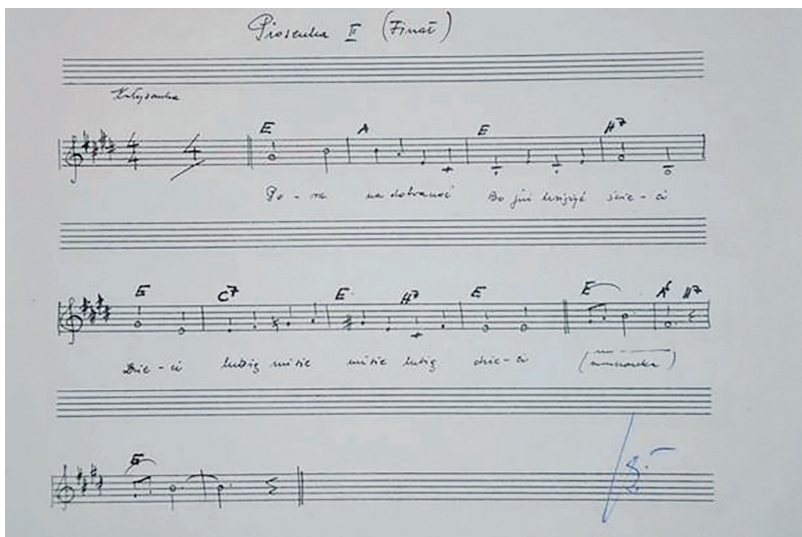 Piosenka II (Finał)
Kołysanka
4 4
E A E H7
Po - ra na dobranoc Bo już księżyc świe - ci
E C7 E H7 E E A H7
Dzie - ci lubią misie misie lubią dzie - ci (mruczanka)
E